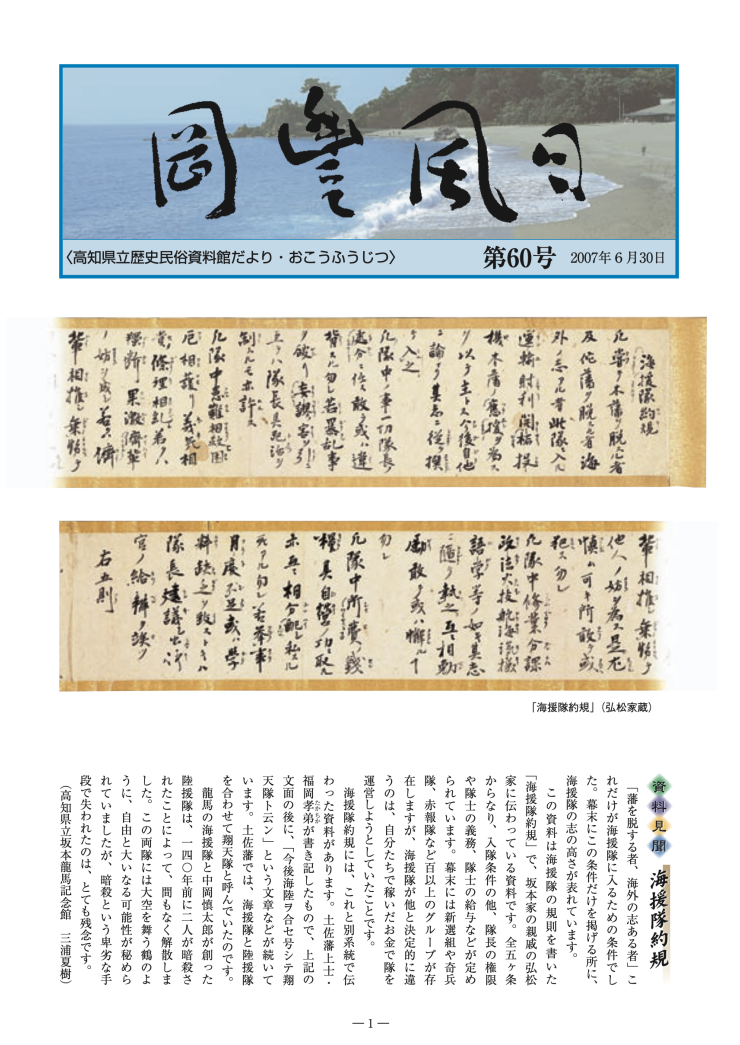 岡豊風日
〈高知県立歴史民俗資料館だより・おこうふうじつ〉
第60号
2007年6月30日
海援隊約規
凡嘗テ本藩ヲ脱スル者
及佗藩ヲ脱スル者海
外ノ志アル者此隊ニ入ル
運輸射利開柘投
機本藩ノ應援ヲ為ス
ヲ以テ主トス今後自他
ニ論ナク其志ニ従テ撰
テ入之
凡隊中ノ事一切隊長ノ
處分ニ任ス敢テ或ハ違
背スル勿レ若暴乱事
ヲ破リ妄謬害ヲ引ニ
至テハ隊長其死活ヲ
制スルモ亦許ス
凡隊中患難相救困
厄相護リ義気相
責條理相糺若クハ
獨断果激儕輩
ノ妨ヲ成シ若クハ儕
輩相推シ乗勢テ
輩相推シ乗勢テ
他人ノ妨ヲ為ス是尤
慎ム可キ所敢テ或
犯ス勿レ
凡隊中修業分課
政法火技航海汽機
語学等ノ如キ其志
ニ隨テ執之互ニ相勉
勵敢テ或ハ懈ルコト
勿レ
凡隊中所費ノ銭
糧其自營ノ功ニ取ル
亦互ニ相分配シ私スル
所アル勿レ若挙事
用度不足或ハ学
料缺乏ヲ致ストキハ
隊長建議シ出崎
官ノ給辨ヲ竢ツ
右五則
「海援隊約規」（弘松家蔵）
資料見聞
海援隊約規
「藩を脱する者、海外の志ある者」こ
れだけが海援隊に入るための条件でし
た。幕末にこの条件だけを掲げる所に、
海援隊の志の高さが表れています。
この資料は海援隊の規則を書いた
「海援隊約規」で、坂本家の親戚の弘松
家に伝わっている資料です。全五ヶ条
からなり、入隊条件の他、隊長の権限
や隊士の義務、隊士の給与などが定め
られています。幕末には新選組や奇兵
隊、赤報隊など百以上のグループが存
在しますが、海援隊が他と決定的に違
うのは、自分たちで稼いだお金で隊を
運営しようとしていたことです。
海援隊約規には、これと別系統で伝
わった資料があります。土佐藩上士・
福岡孝弟が書き記したもので、上記の
たかちか
文面の後に、「今後海陸ヲ合セ号シテ翔
天隊ト云ン」という文章などが続いて
います。土佐藩では、海援隊と陸援隊
を合わせて翔天隊と呼んでいたのです。
龍馬の海援隊と中岡慎太郎が創った
陸援隊は、一四〇年前に二人が暗殺さ
れたことによって、間もなく解散しま
した。この両隊には大空を舞う鶴のよ
うに、自由と大いなる可能性が秘めら
れていましたが、暗殺という卑劣な手
段で失われたのは、とても残念です。
（高知県立坂本龍馬記念館　三浦夏樹）
― 1 ―